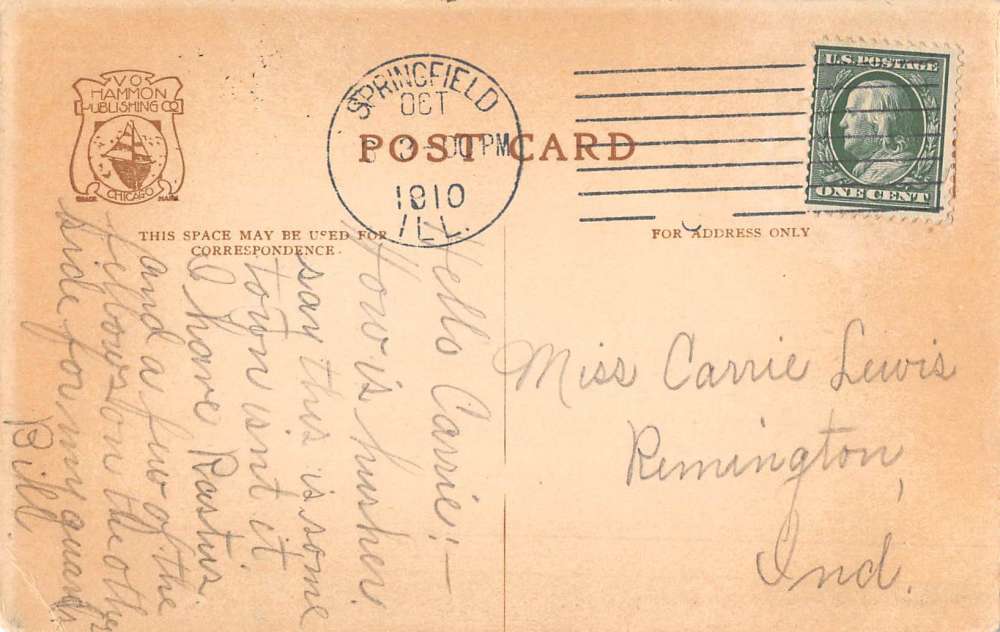 V.O.
HAMMON
PUBLISHING CO
CHICAGO
TRADE MARK
SPRINGFIELD
OCT
3 - 00 PM
1910
ILL.
POST CARD
U.S. POSTAGE
ONE CENT
THIS SPACE MAY BE USED FOR
CORRESPONDENCE.
FOR ADDRESS ONLY
Hello Carrie!—
How is husher
say this is some
town isn't it
I have Rastus
and a few of the
fellows on the other
side for my guards
Bill
Miss Carrie Lewis
Remington,
Ind.